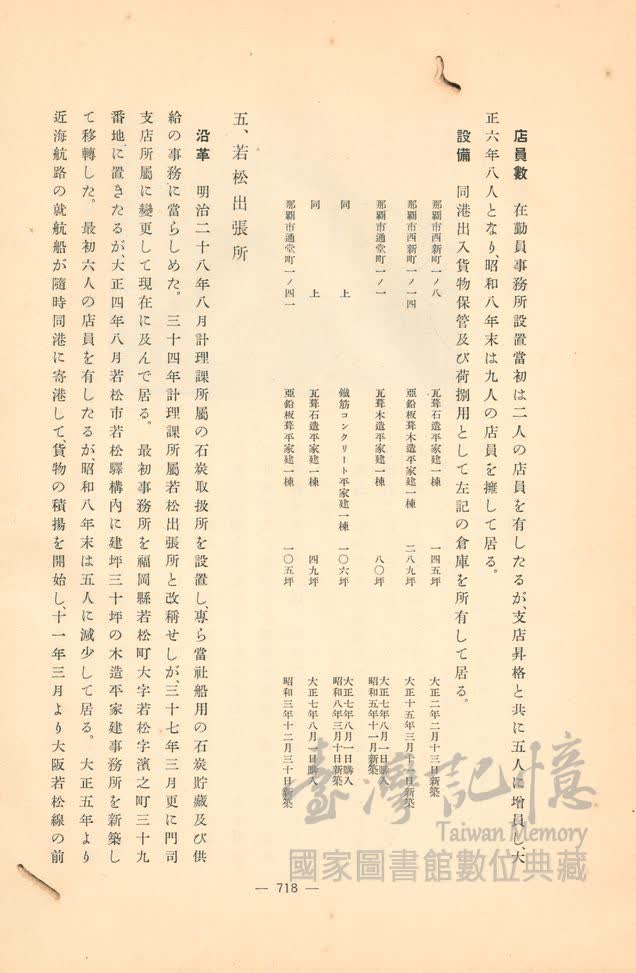 店員數　在勤員事務所設置當初は二人の店員を有したるが、支店昇格と共に五人に增員し、大
正六年八人となり、昭和八年末は九人の店員を擁して居る。
設備　同港出入貨物保管及び荷捌用として左記の倉庫を所有して居る。
那覇市西新町一ノ八　瓦葺石造平家建一棟　一四五坪　大正二年二月十三日新築
那覇市西新町一ノ一四　亞鉛板葺木造平家建一棟　二八九坪　大正十五年三月三十一日新築
那覇市通堂町一ノ一　瓦葺木造平家建一棟　八〇坪　大正七年八月一日購入　昭和五年十一月新築
同　上　鐵筋コンクリート平家建一棟　一〇六坪　大正七年八月一日購入　昭和八年三月十日新築
同　上　瓦葺石造平家建一棟　四九坪　大正七年八月一日購入
那覇市通堂町一ノ四一　亞鉛板葺平家建一棟　一〇五坪　昭和三年十二月三十日新築
五、若松出張所
沿革　明治二十八年八月計理課所屬の石炭取扱所を設置し、專ら當社船用の石炭貯藏及び供
給の事務に當らしめた。三十四年計理課所屬若松出張所と改稱せしが、三十七年三月更に門司
支店所屬に變更して現在に及んで居る。最初事務所を福岡縣若松町大字若松字濱之町三十九
番地に置きたるが、大正四年八月若松市若松驛構內に建坪三十坪の木造平家建事務所を新築し
て移轉した。最初六人の店員を有したるが昭和八年末は五人に減少して居る。大正五年より
近海航路の就航船が隨時同港に寄港して、貨物の積揚を開始し、十一年三月より大阪若松線の前
臺灣記憶
Taiwan Memory
國家圖書館數位典藏
— 718 —